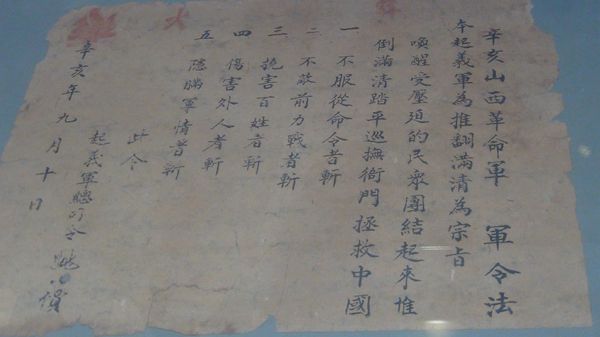 辛亥山西革命軍 軍令法
本起義軍為推翻滿清為宗旨
喚醒受壓迫的民衆團結起來推
倒滿清踏平巡撫衙門拯救中國
一 不服從命令者斬
二 不敢前力戰者斬
三 擾害百姓者斬
四 傷害外人者斬
五 隱瞞軍情者斬
此令
起義軍總司令姚
辛亥年九月十日